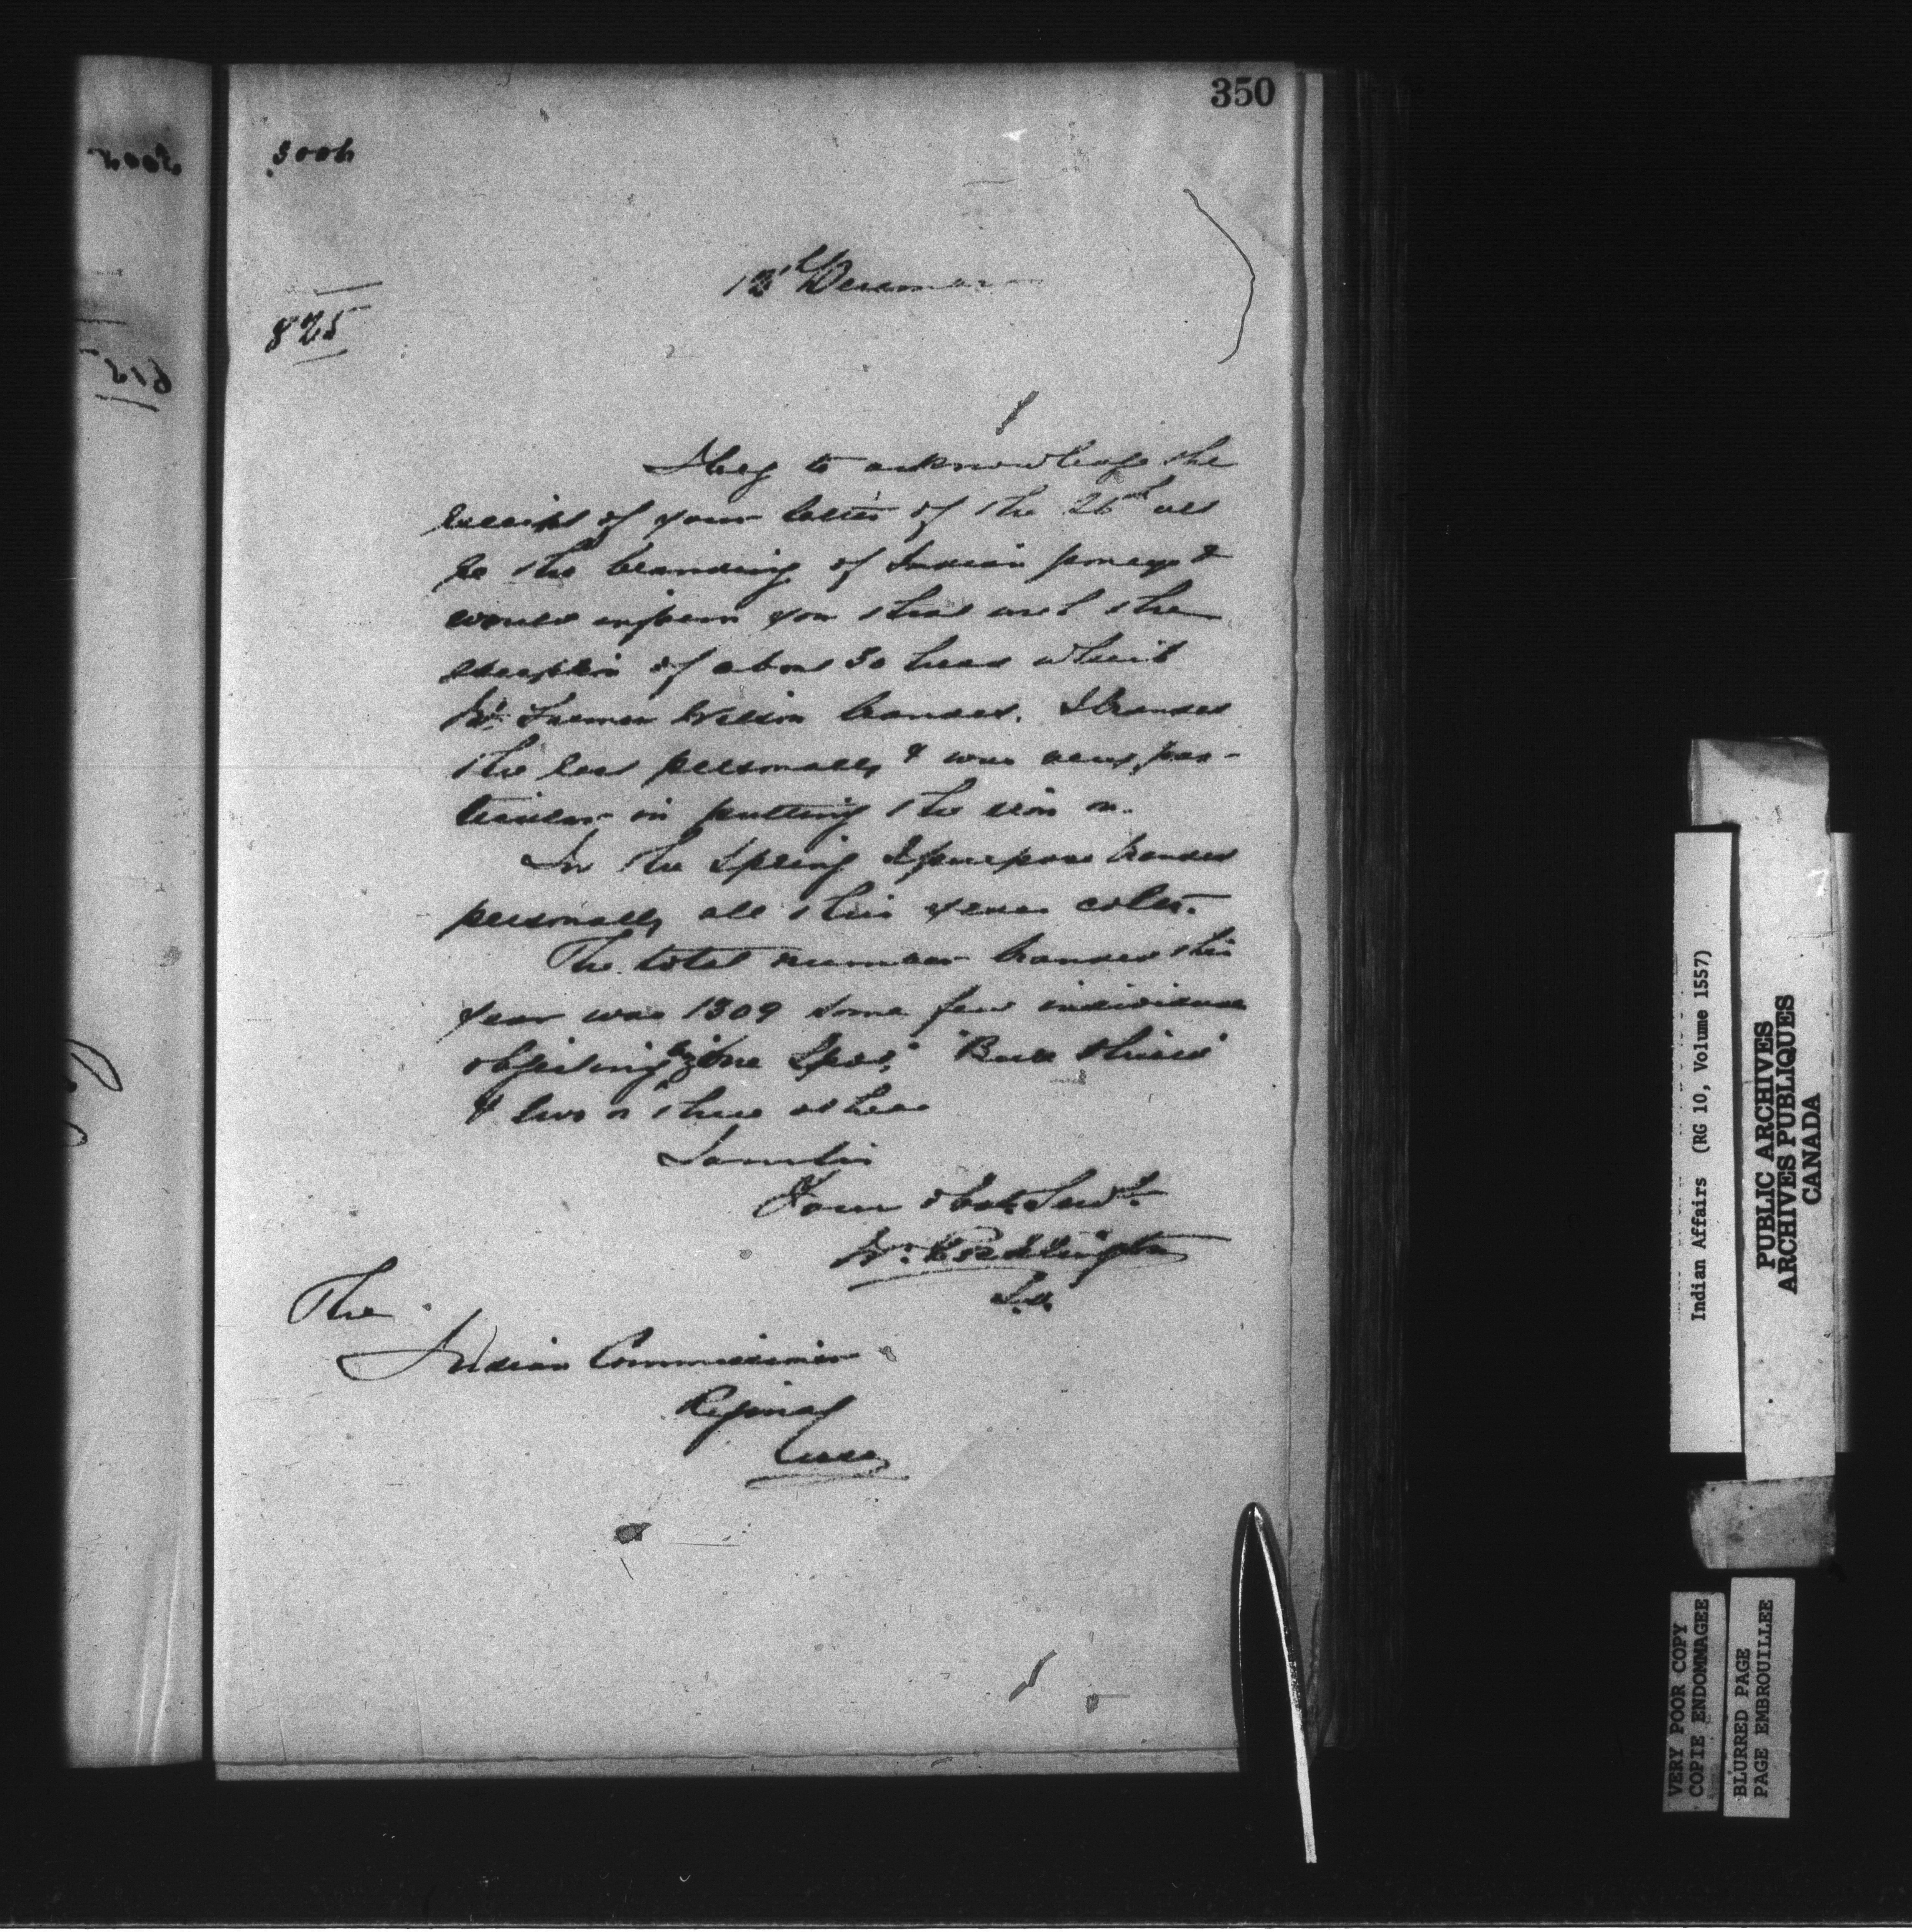 350
12th December
825
I beg to acknowledge the
receipt of your letter of the 26th ult
re the branding of Indian poneys &
would inform you that with the
exception of about 30 head which
Mr. Farmer Wilson branded. I branded
the rest personally & was very par-
ticular in putting the iron on.
In the Spring I purpose brand
personally all this years colts.
The total number branded this
year was 1309 some few individuals
objecting "One Spot," "Bull Shield"
& two or three others
I am Sir
Your obedt. Servt.
Wm. Pocklington
The
Indian Commissioner
Regina
Assa
Indian Affairs (RG 10, Volume 1557)
PUBLIC ARCHIVES
ARCHIVES PUBLIQUES
CANADA
VERY POOR COPY
COPIE ENDOMMAGEE
BLURRED PAGE
PAGE EMBROUILLEE